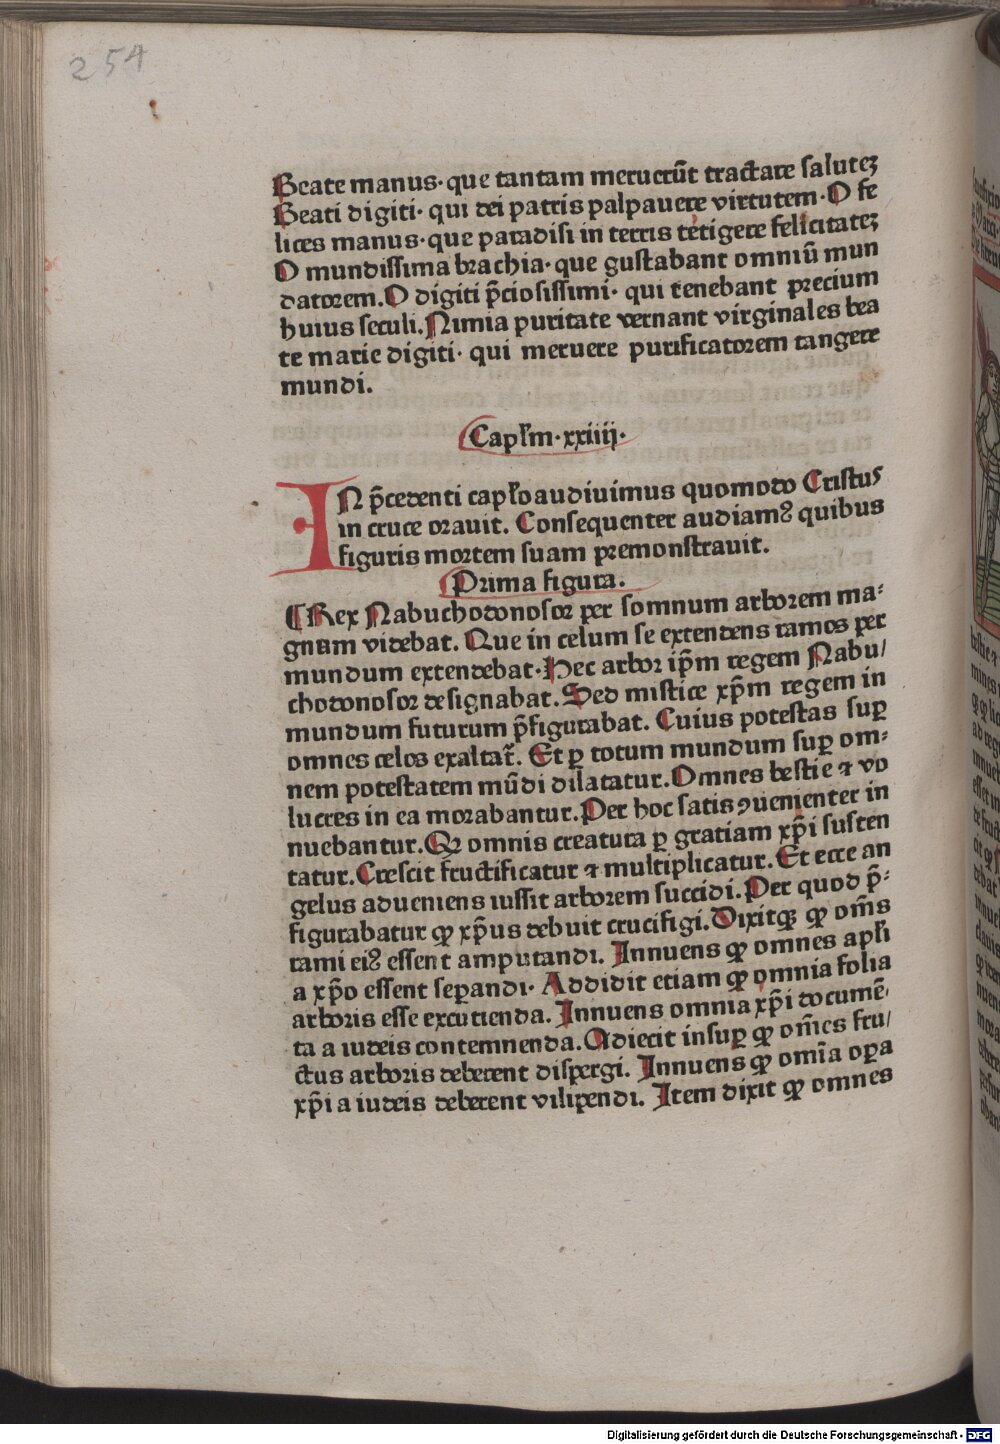 254
Beate manus· que tantam meruerūt tractare salutez
Beati digiti· qui dei patris palpauere virtutem· O fe
lices manus· que paradisi in terris tetigere felicitatez
O mundissima brachia· que gustabant omniū mun
datorem. O digiti p̄ciosissimi· qui tenebant precium
huius seculi. Nimia puritate vernant virginales bea
te marie digiti· qui meruere purificatorem tangere
mundi.
Capl̄m· xxiiij·
IN p̄cedenti capl̄o audiuimus quomodo Cristus
in cruce orauit. Consequenter audiamꝰ quibus
figuris mortem suam premonstrauit.
Prima figura.
¶ Rex Nabuchodonosor per somnum arborem ma⸗
gnam videbat. Que in celum se extendens ramos per
mundum extendebat· Hec arbor ip̄m regem Nabu/
chodonosor designabat. Sed mistice xp̄m regem in
mundum futurum p̄figurabat. Cuius potestas suꝑ
omnes celos exaltat̄. Et ꝑ totum mundum suꝑ om⸗
nem potestatem mūdi dilatatur. Omnes bestie ⁊ vo
lucres in ea morabantur. Per hoc satis ꝯuenienter in
nuebantur. Qꝛ omnis creatura ꝑ gratiam xp̄i susten
tatur. Crescit fructificatur ⁊ multiplicatur. Et ecce an
gelus adueniens iussit arborem succidi. Per quod p̄⸗
figurabatur ꝙ xp̄us debuit crucifigi. Dixitqꝫ ꝙ om̄s
rami eiꝰ essent amputandi. Innuens ꝙ omnes apl̄i
a xp̄o essent seꝑandi· Addidit etiam ꝙ omnia folia
arboris esse excutienda. Innuens omnia xp̄i documē⸗
ta a iudeis contemnenda. Adiecit insuꝑ ꝙ om̄es fru/
ctus arboris deberent dispergi. Innuens ꝙ omīa oꝑa
xp̄i a iudeis deberent vilipendi. Item dixit ꝙ omnes
Digitalisierung gefördert durch die Deutsche Forschungsgemeinschaft · DFG